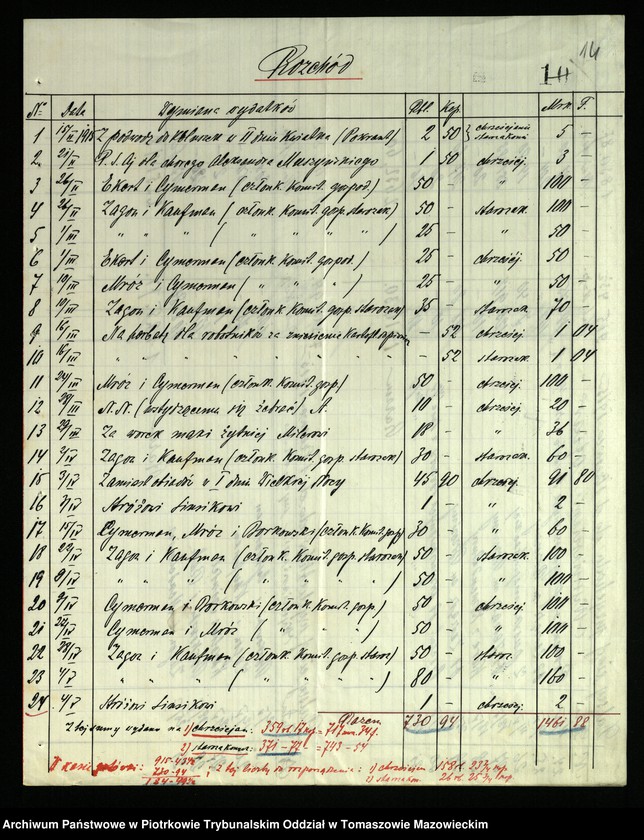 14
10
Rozchód
No Data Wymiana wydatków Rbl. Kop. Mrk. F.
1 15/II 1915 Z podwodę w II dniu (Pokrant) 2 50 } chrześcijanie starozakonni 5 –
2 21/II dla chorego Aleksandra Muszyńskiego 1 50 chrześcij. 3 –
3 26/II Ekert i Cymerman (członk. Komit. gospod.) 50 – " 100 –
4 26/II Zagon i Kaufman (członk. Komit. gosp. starozak.) 50 – starozak. 100 –
5 1/III " " " ( " " " " ) 25 – " 50 –
6 1/III Ekert i Cymerman (członk. Komit. gospod.) 25 – chrześcij. 50 –
7 10/III Mróz i Cymerman ( " " " ) 25 – " 50 –
8 10/III Zagon i Kaufman (członk. Komit. gosp. starozak) 35 starozak. 70 –
9 16/III Na herbatę dla robotników za zniesienie – 52 chrześcij. 1 04
10 16/III " " " " " " – 52 starozak. 1 04
11 24/III Mróz i Cymerman (członk. Komit. gosp) 50 – chrześcij. 100 –
12 28/III N. N. (wstydzącemu się żebrać) N. 10 – chrześcij. 20 –
13 29/III Za worek mąki żytniej Milerowi 18 – " 36 –
14 2/IV Zagon i Kaufman (członk. Komit. gosp. starozak) 30 – starozak. 60 –
15 3/IV Zamiast obiadów w I dniu Wielkiej Nocy 45 90 chrześcij. 91 80
16 7/IV Stróżowi Simikowi 1 – " 2 –
17 15/IV Cymerman, Mróz i Borkowski (członk. Komit. gosp) 30 – " 60 –
18 22/IV Zagon i Kaufman (członk. Komit. gosp. starozak) 50 – starozak. 100 –
19 " " " ( " " " " ) 50 – " 100 –
20 Cymerman i Borkowski (członk. Komit. gosp.) 50 – chrześcij. 100 –
21 22/IV Cymerman i Mróz ( " " " ) 50 – " 100 –
22 28/IV Zagon i Kaufman (członk. Komit. gosp. staroz) 50 – staroz. 100 –
23 4/V " " " ( " " " " ) 80 – " 160 –
24 4/V Stróżowi Simikowi 1 – chrześcij. 2 –
Razem 730 94 1461 88
Z tej sumy wydano na 1) chrześcijan: 359
2) starozakon: 371 = 743 – 54
W kasie gotówki: ; z tej liczby do rozporządzenia: 1) chrześcijan 158
730-94 2) starozakon 26
Archiwum Państwowe w Piotrkowie Trybunalskim Oddział w Tomaszowie Mazowieckim